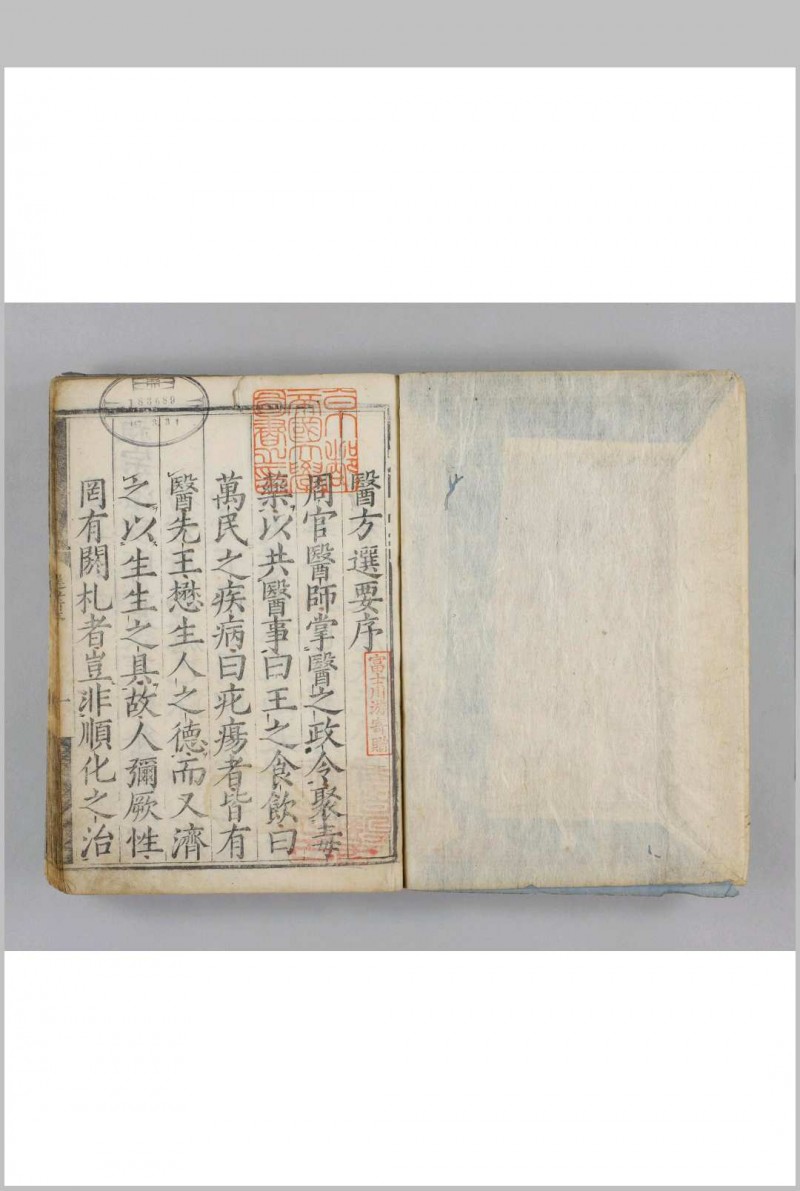 醫方選要序
周官醫師掌醫之政令聚毒
藥以共醫事曰王之食飲曰
萬民之疾病曰疕瘍者皆有
醫先王懋生人之德而又濟
之以生生之具故人彌厥性
罔有閼札者豈非順化之治
京都
帝國大學
圖書之印
富士川游寄贈
185689